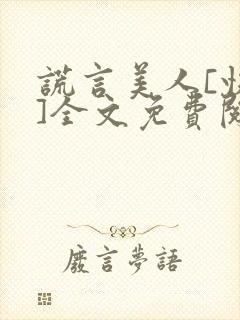 謊言美人[
]全文免費
廢言夢語